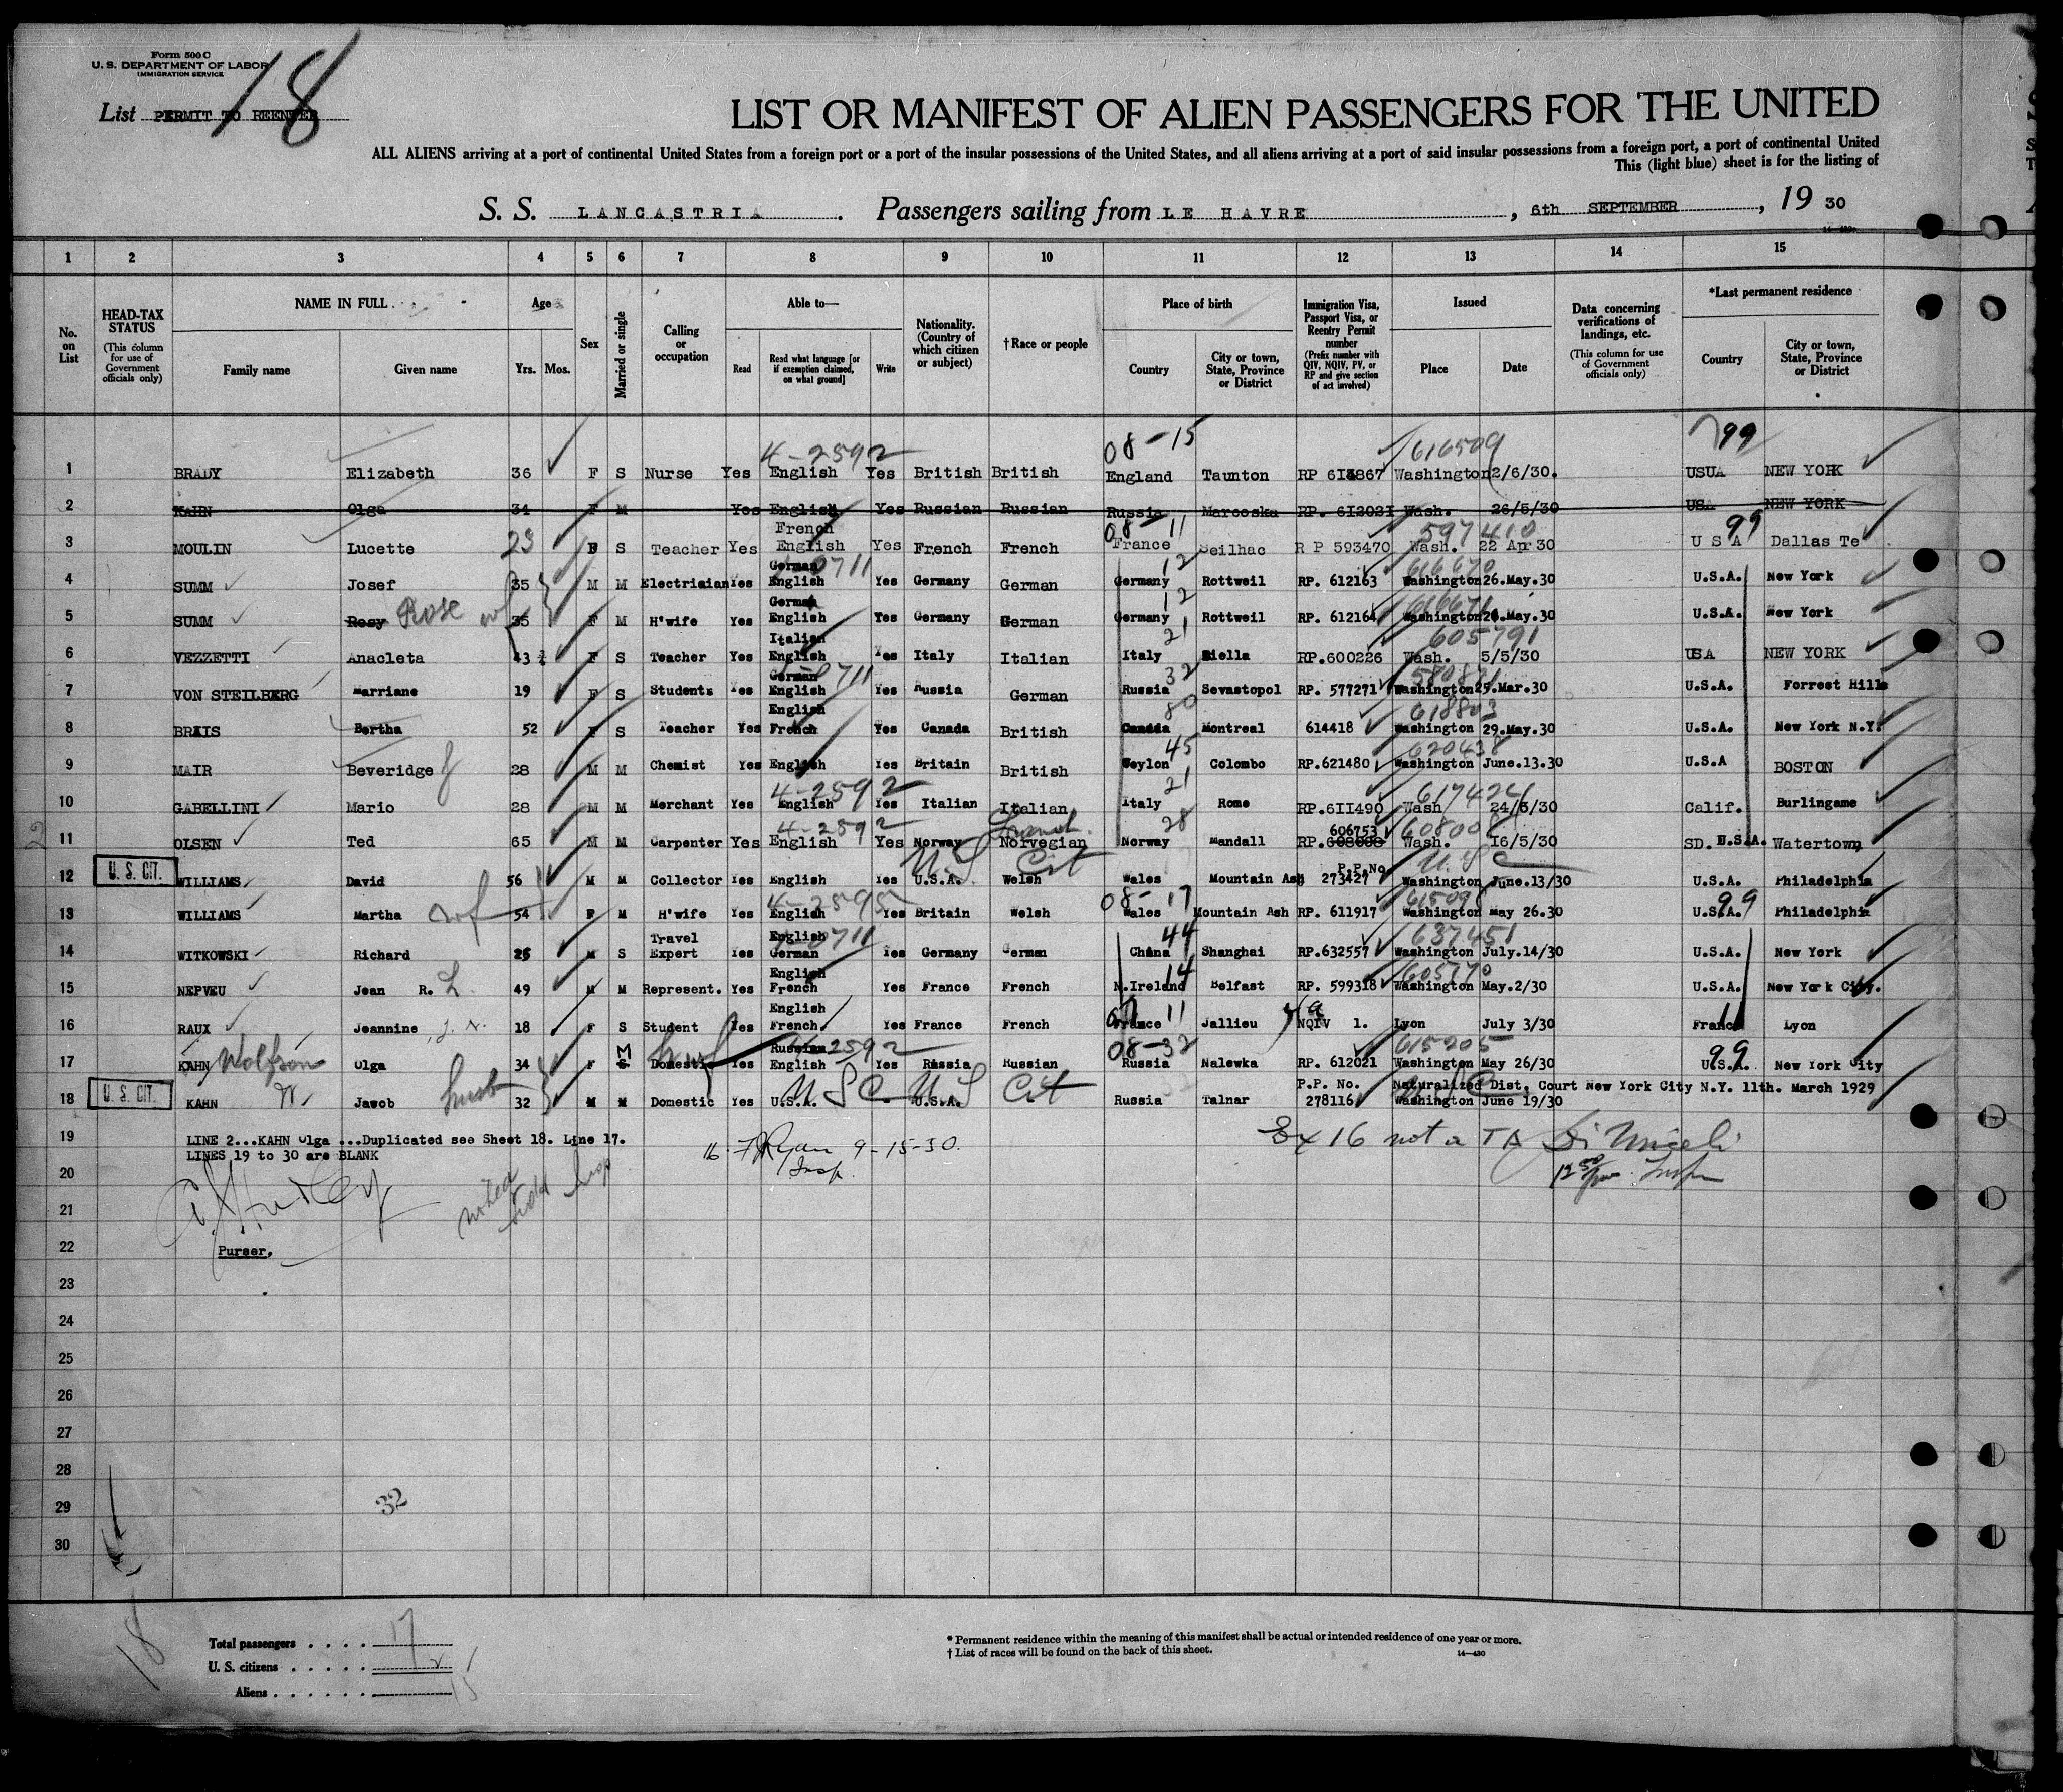 Form 500 C
U. S. DEPARTMENT OF LABOR
IMMIGRATION SERVICE
18
List PERMIT TO REENTER
LIST OR MANIFEST OF ALIEN PASSENGERS FOR THE UNITED
ALL ALIENS arriving at a port of continental United States from a foreign port or a port of the insular possessions of the United States, and all aliens arriving at a port of said insular possessions from a foreign port, a port of continental United
This (light blue) sheet is for the listing of
S. S. LANCASTRIA . Passengers sailing from LE HAVRE , 6th SEPTEMBER , 19 30
1 2 3 4 5 6 7 8 9 10 11 12 13 14 15
No. on List
HEAD-TAX STATUS (This column for use of Government officials only)
NAME IN FULL
Family name Given name
Age
Yrs. Mos.
Sex
Married or single
Calling or occupation
Able to—
Read Read what language [or if exemption claimed, on what ground] Write
Nationality. (Country of which citizen or subject)
† Race or people
Place of birth
Country City or town, State, Province or District
Immigration Visa, Passport Visa, or Reentry Permit number (Prefix number with QIV, NQIV, PV, or RP and give section of act involved)
Issued
Place Date
Data concerning verifications of landings, etc. (This column for use of Government officials only)
*Last permanent residence
Country City or town, State, Province or District
4-2592 08-15 616509 99
1 BRADY Elizabeth 36 F S Nurse Yes English Yes British British England Taunton RP 613867 Washington 2/6/30. USUA NEW YORK
2 KAHN Olga 34 F M Yes English Yes Russian Russian Russia Marooska RP. 612021 Wash. 26/5/30 USA NEW YORK
French 08-11 597410 99
3 MOULIN Lucette 23 F S Teacher Yes English Yes French French France Seilhac R P 593470 Wash. 22 Apr 30 U S A Dallas Te
German 0711 12 616670
4 SUMM Josef 35 M M Electrician Yes English Yes Germany German Germany Rottweil RP. 612163 Washington 26.May.30 U.S.A. New York
German 12 616671
5 SUMM Rosy Rose wf 35 F M H'wife Yes English Yes Germany German Germany Rottweil RP. 612164 Washington 26.May.30 U.S.A. New York
Italian 21 605791
6 VEZZETTI Anacleta 43 F S Teacher Yes English Yes Italy Italian Italy Biella RP.600226 Wash. 5/5/30 USA NEW YORK
German 0711 32 580821
7 VON STEILBERG Marriane 19 F S Students Yes English Yes Russia German Russia Sevastopol RP. 577271 Washington 25.Mar.30 U.S.A. Forrest Hills
English 80 618803
8 BRAIS Bertha 52 F S Teacher Yes French Yes Canada British Canada Montreal 614418 Washington 29.May.30 U.S.A. New York N.Y.
45 620438
9 MAIR Beveridge 28 M M Chemist Yes English Yes Britain British Ceylon Colombo RP.621480 Washington June.13.30 U.S.A BOSTON
4-2592 21 617424
10 GABELLINI Mario 28 M M Merchant Yes English Yes Italian Italian Italy Rome RP.611490 Wash 24/5/30 Calif. Burlingame
4-2592 28 606753 60800
11 OLSEN Ted 65 M M Carpenter Yes English Yes Norway Norvegian Norway Mandall RP.608008 Wash. 16/5/30 SD. U.S.A. Watertown
U. S. CIT. U.S Cit P.P.No U.S C
12 WILLIAMS David 56 M M Collector Yes English Yes U.S.A. Welsh Wales Mountain Ash 273427 Washington June.13/30 U.S.A. Philadelphia
4-2595 08-17 99
13 WILLIAMS Martha wf 54 F M H'wife Yes English Yes Britain Welsh Wales Mountain Ash RP. 611917 Washington May 26.30 U.S.A. Philadelphia
Travel English 0711 44 637451
14 WITKOWSKI Richard 25 M S Expert Yes German Yes Germany German China Shanghai RP.632557 Washington July.14/30 U.S.A. New York
English 14 605170
15 NEPVEU Jean R. L. 49 M M Represent. Yes French Yes France French N.Ireland Belfast RP. 599318 Washington May.2/30 U.S.A. New York City.
English 11 11
16 RAUX Jeannine 18 F S Student Yes French Yes France French France Jallieu NQIV 1. Lyon July 3/30 France Lyon
Wolfson M wf Russian 2592 08-32 615205 99
17 KAHN Olga 34 F S Domestic Yes English Yes Russia Russian Russia Nalewka RP. 612021 Washington May 26/30 U.S.A. New York City
U. S. CIT. husb U S C U S Cit P.P. No. Naturalized Dist. Court New York City N.Y. 11th. March 1929
18 KAHN Jawob 32 M M Domestic Yes U.S.A. U.S.A. Russia Talnar 278116 Washington June 19/30
19 LINE 2...KAHN Olga ...Duplicated see Sheet 18. Line 17.
LINES 19 to 30 are BLANK
16 Ryan 9-15-30. Insp.
Ex 16 not a TA
20
21
22 Purser.
23
24
25
26
27
28
29
30
32
18
Total passengers . . . . 17
U. S. citizens . . . . . 2
Aliens . . . . . . 15
* Permanent residence within the meaning of this manifest shall be actual or intended residence of one year or more.
† List of races will be found on the back of this sheet.
14—430